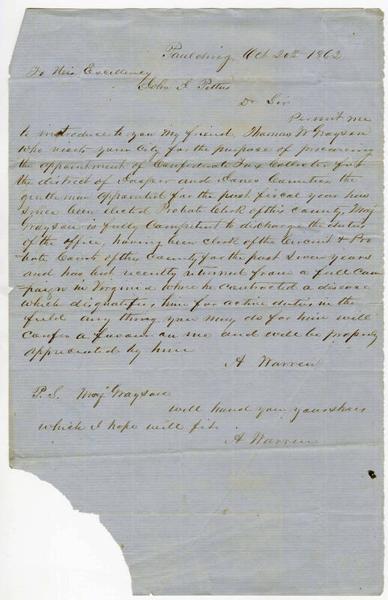 Paulding Oct 20th 1862
To His Excellency
John J Pettus
Dr Sir
Permit me
to introduce to you my friend, Thomas W Grayson
who visits your City for the purpose of procuring
the appointment of Confederate Tax Collector for
the district of Jasper and Jones Counties the
gentleman appointed for the past fiscal year has
since been elected Probate Clerk of this County, Maj
Grayson is fully Competent to discharge the duties
of the office, having been clerk of the Circuit & Pro
bate Courts of this County for the past Seven years
and has but recently returned from a full Cam
paign in Virginia where he contracted a disease
which disqualifies him for active duties in the
field any thing you may do for him will
confer a favour on me and will be properly
appreciated by him
A Warren
P.S. Maj Grayson
will hand you your shoes
which I hope will fit.
A Warren